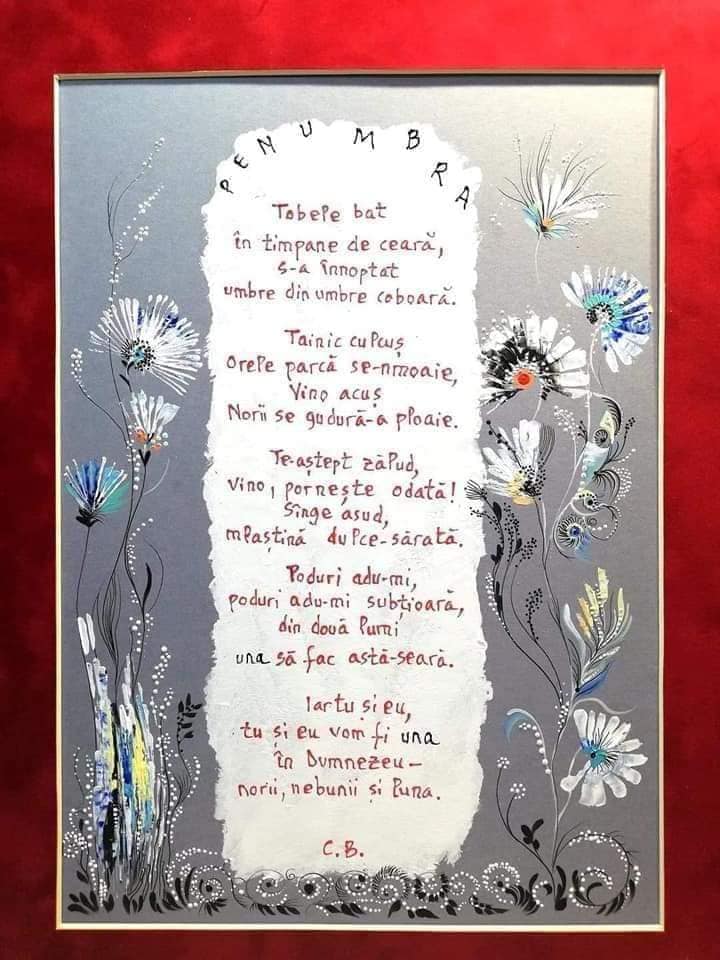 PENUMBRA
Tobele bat
în timpane de ceară,
s-a înnoptat
umbre din umbre coboară.
Tainic culcuș
Orele parcă se-nmoaie,
Vino acuș
Norii se gudură-a ploaie.
Te-aștept zălud,
vino, pornește odată!
Sînge asud,
mlaștină dulce-sărată.
Poduri adu-mi,
poduri adu-mi subțioară,
din două lumi
una să fac astă-seară.
Iar tu și eu,
tu și eu vom fi una
în Dumnezeu-
norii, nebunii și luna.
C.B.